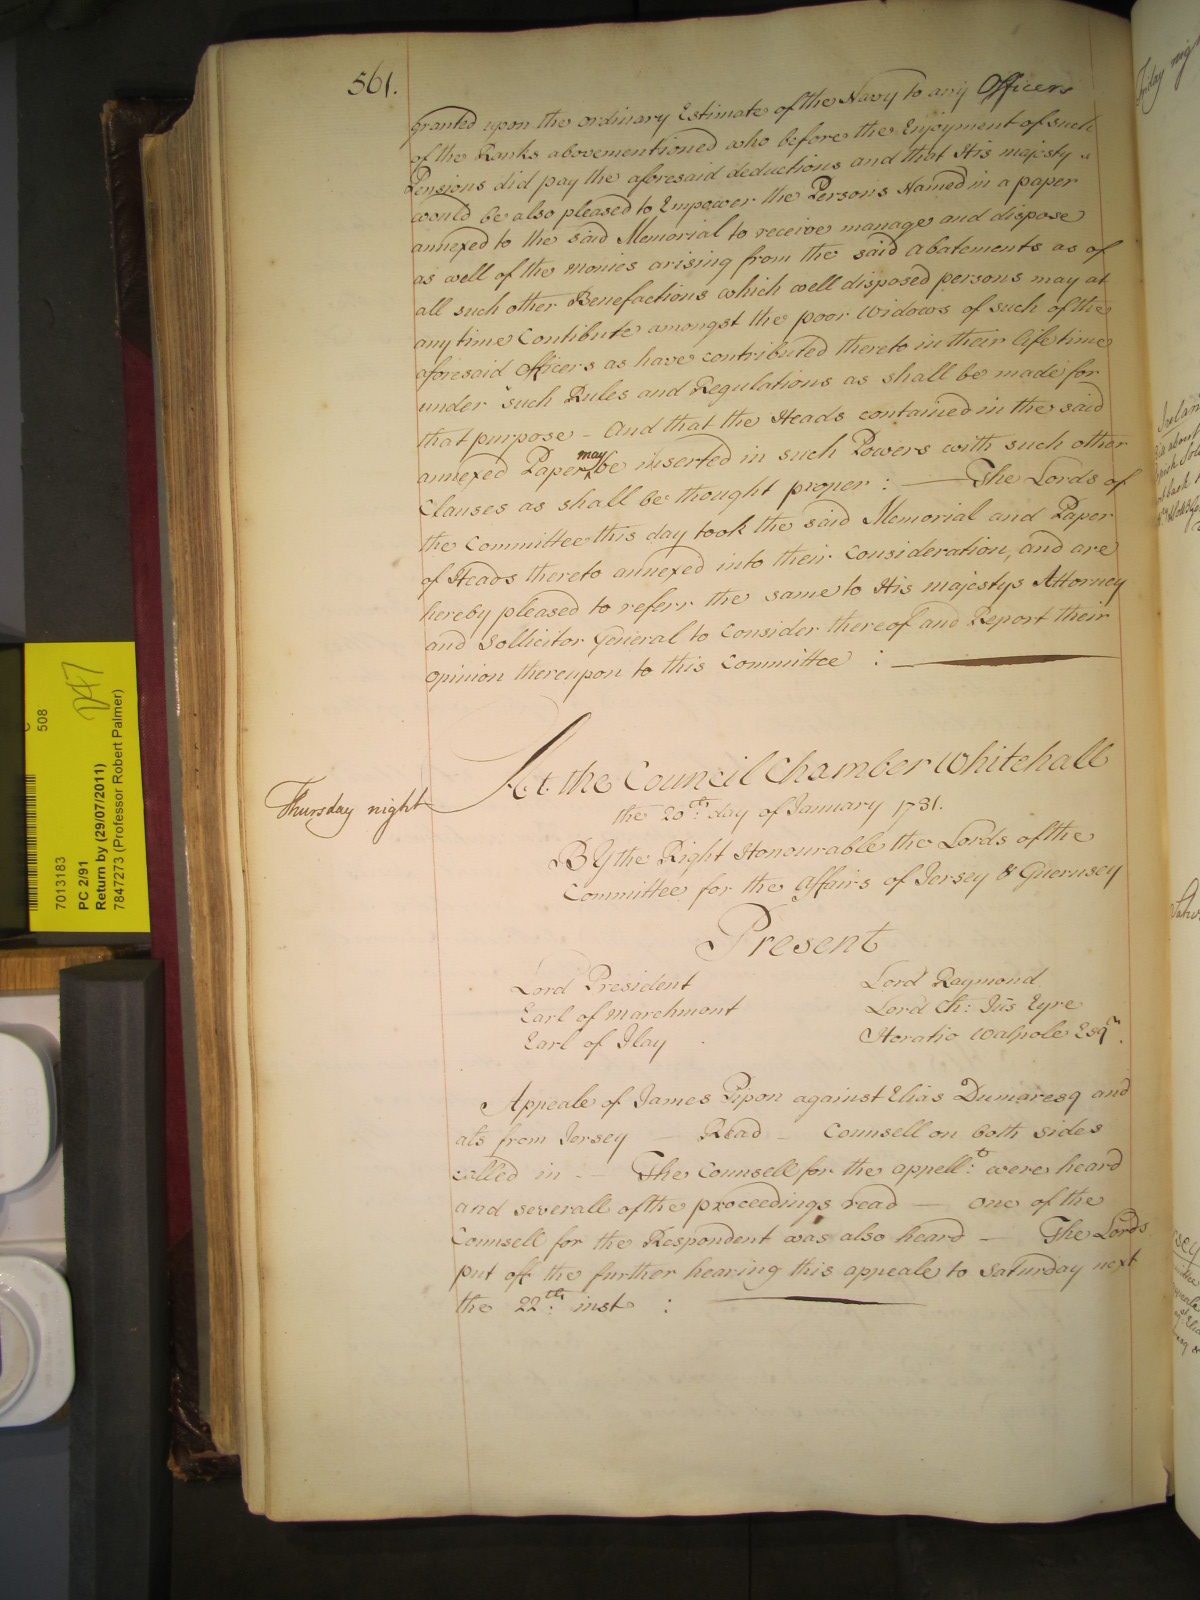 561.
granted upon the ordinary Estimate of the Navy to any Officers
of the Ranks abovementioned who before the Enjoyment of such
Pensions did pay the aforesaid deductions and that His majesty
would be also pleased to Empower the Persons Named in a paper
annexed to the said Memorial to receive manage and dispose
as well of the monies arising from the said abatements as of
all such other Benefactions which well disposed persons may at
any time Contibute amongst the poor Widows of such of the
aforesaid Officers as have contributed thereto in their life time
under such Rules and Regulations as shall be made for
that purpose - And that the Heads contained in the said
annexed Paper may be inserted in such Powers with such other
Clauses as shall be thought proper : — The Lords of
the Committee this day took the said Memorial and Paper
of Heads thereto annexed into their Consideration, and are
hereby pleased to referr the same to His majestys Attorney
and Sollicitor General to Consider thereof and Report their
opinion thereupon to this Committee : —
Thursday night
At the Council Chamber Whitehall
the 20th: day of January 1731.
By the Right Honourable the Lords of the
Committee for the Affairs of Jersey & Guernsey
Present
Lord President
Earl of Marchmont
Earl of Ilay
Lord Raymond
Lord Ch: Jus Eyre
Horatio Walpole Esqr.
Appeale of James Pipon against Elias Dumaresq and
als from Jersey — Read — Counsell on both sides
called in - — The Counsell for the appell:t were heard
and severall of the proceedings read — one of the
Counsell for the Respondent was also heard — The Lords
put off the further hearing this appeale to Saturday next
the 22th: inst : —
508
247
7013183
PC 2/91
Return by (29/07/2011)
7847273 (Professor Robert Palmer)
Friday